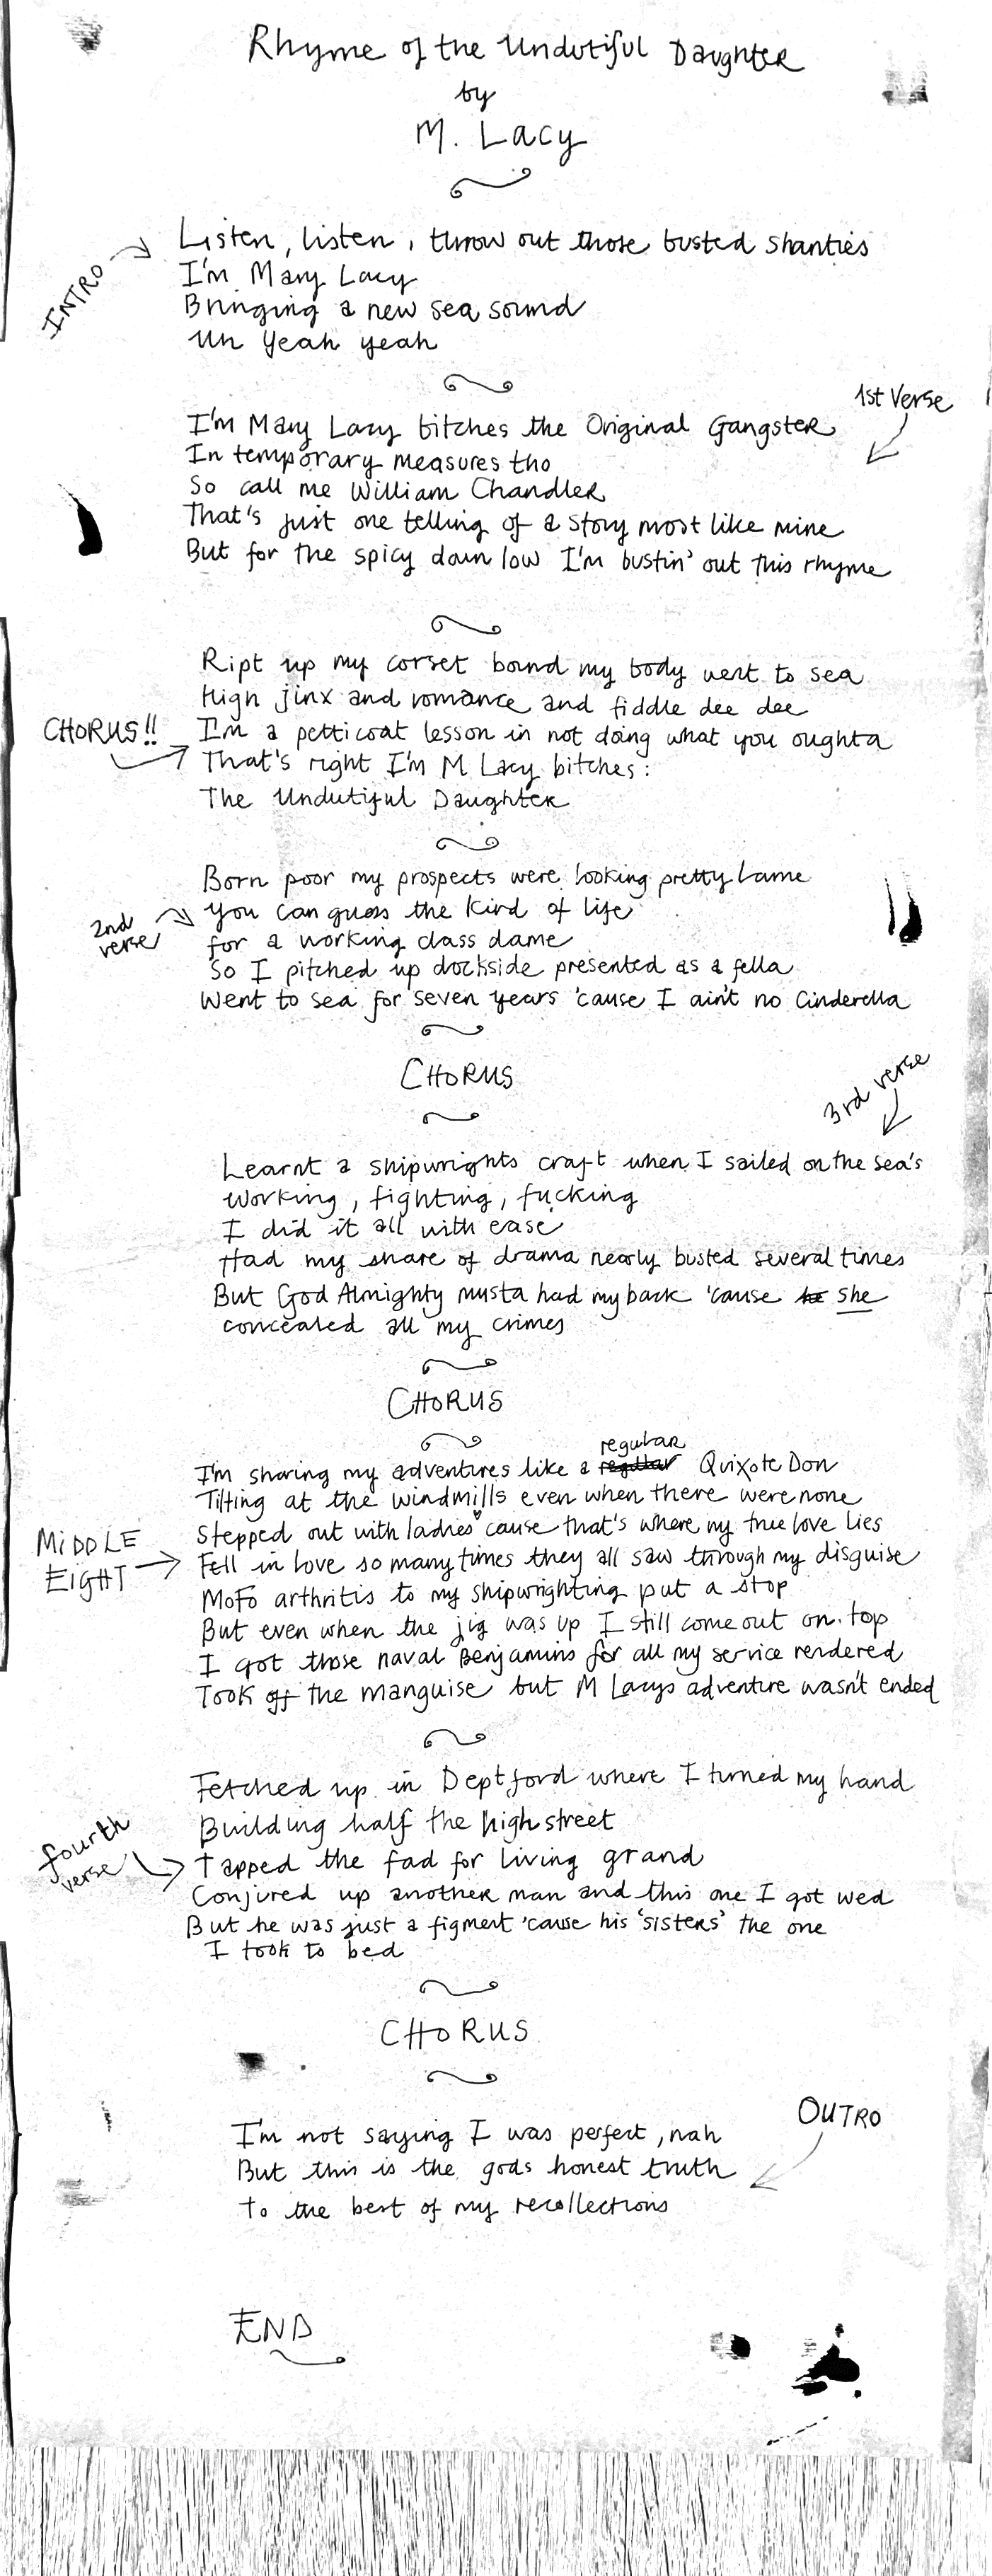 Rhyme of the Undutiful Daughter
by
M. Lacy
INTRO
Listen, listen, throw out those busted shanties
I'm Mary Lacy
Bringing a new sea sound
Uh Yeah yeah
1st Verse
I'm Mary Lacy bitches the Original Gangster
In temporary measures tho
So call me William Chandler
That's just one telling of a story most like mine
But for the spicy down low I'm bustin' out this rhyme
CHORUS!!
Ript up my corset bound my body went to sea
High jinx and romance and fiddle dee dee
I'm a petticoat lesson in not doing what you oughta
That's right I'm M Lacy bitches:
The Undutiful Daughter
2nd verse
Born poor my prospects were looking pretty lame
You can guess the kind of life
for a working class dame
So I pitched up dockside presented as a fella
Went to sea for seven years 'cause I ain't no Cinderella
CHORUS
3rd verse
Learnt a shipwrights craft when I sailed on the sea's
Working, fighting, fucking
I did it all with ease
Had my share of drama nearly busted several times
But God Almighty musta had my back 'cause he she
concealed all my crimes
CHORUS
MIDDLE EIGHT
I'm sharing my adventures like a regular regular Quixote Don
Tilting at the windmills even when there were none
Stepped out with ladies 'cause that's where my true love lies
Fell in love so many times they all saw through my disguise
MoFo arthritis to my shipwrighting put a stop
But even when the jig was up I still come out on top
I got those naval Benjamins for all my service rendered
Took off the manguise but M Lacys adventure wasn't ended
fourth verse
Fetched up in Deptford where I turned my hand
Building half the high street
Tapped the fad for living grand
Conjured up another man and this one I got wed
But he was just a figment 'cause his 'sisters' the one
I took to bed
CHORUS
OUTRO
I'm not saying I was perfect, nah
But this is the gods honest truth
To the best of my recollections
END